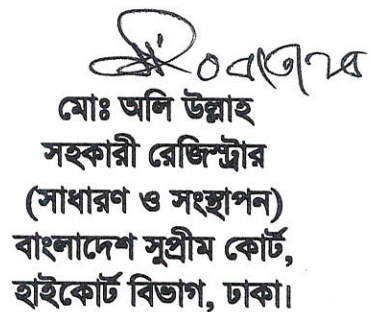 মোঃ অলি উল্লাহ
সহকারী রেজিস্ট্রার
(সাধারণ ও সংস্থাপন)
বাংলাদেশ সুপ্রীম কোর্ট,
হাইকোর্ট বিভাগ, ঢাকা।